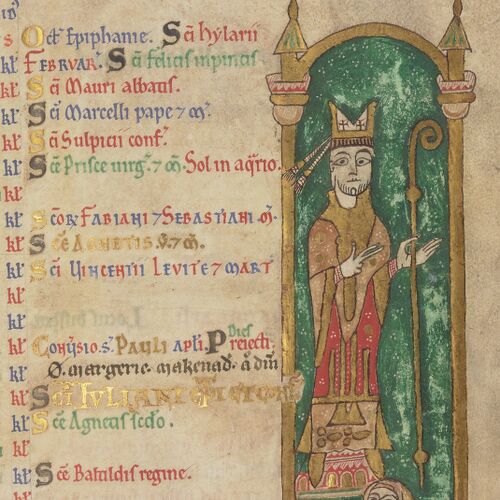 Oct Epiphanie. Sci hylarii
kl Februar. Sci felicis inpincis
kl Sci Mauri abbatis.
kl Sci Marcelli pape 7 m.
kl Sci Sulpicii conf.
kl Sce Prisce virg. 7 m. Sol in aqrio.
kl Scor Fabiani 7 Sebastiani m.
kl Sce Agnetis v. 7 m.
kl Sci Vincentii levite 7 mart
kl
kl Cōvsio. s. Pauli apli. Dies Preiecti.
O. margerie. makenad.
kl Sci Iuliani
kl Sce Agnetis scdo.
kl
kl Sce Batildis regine.